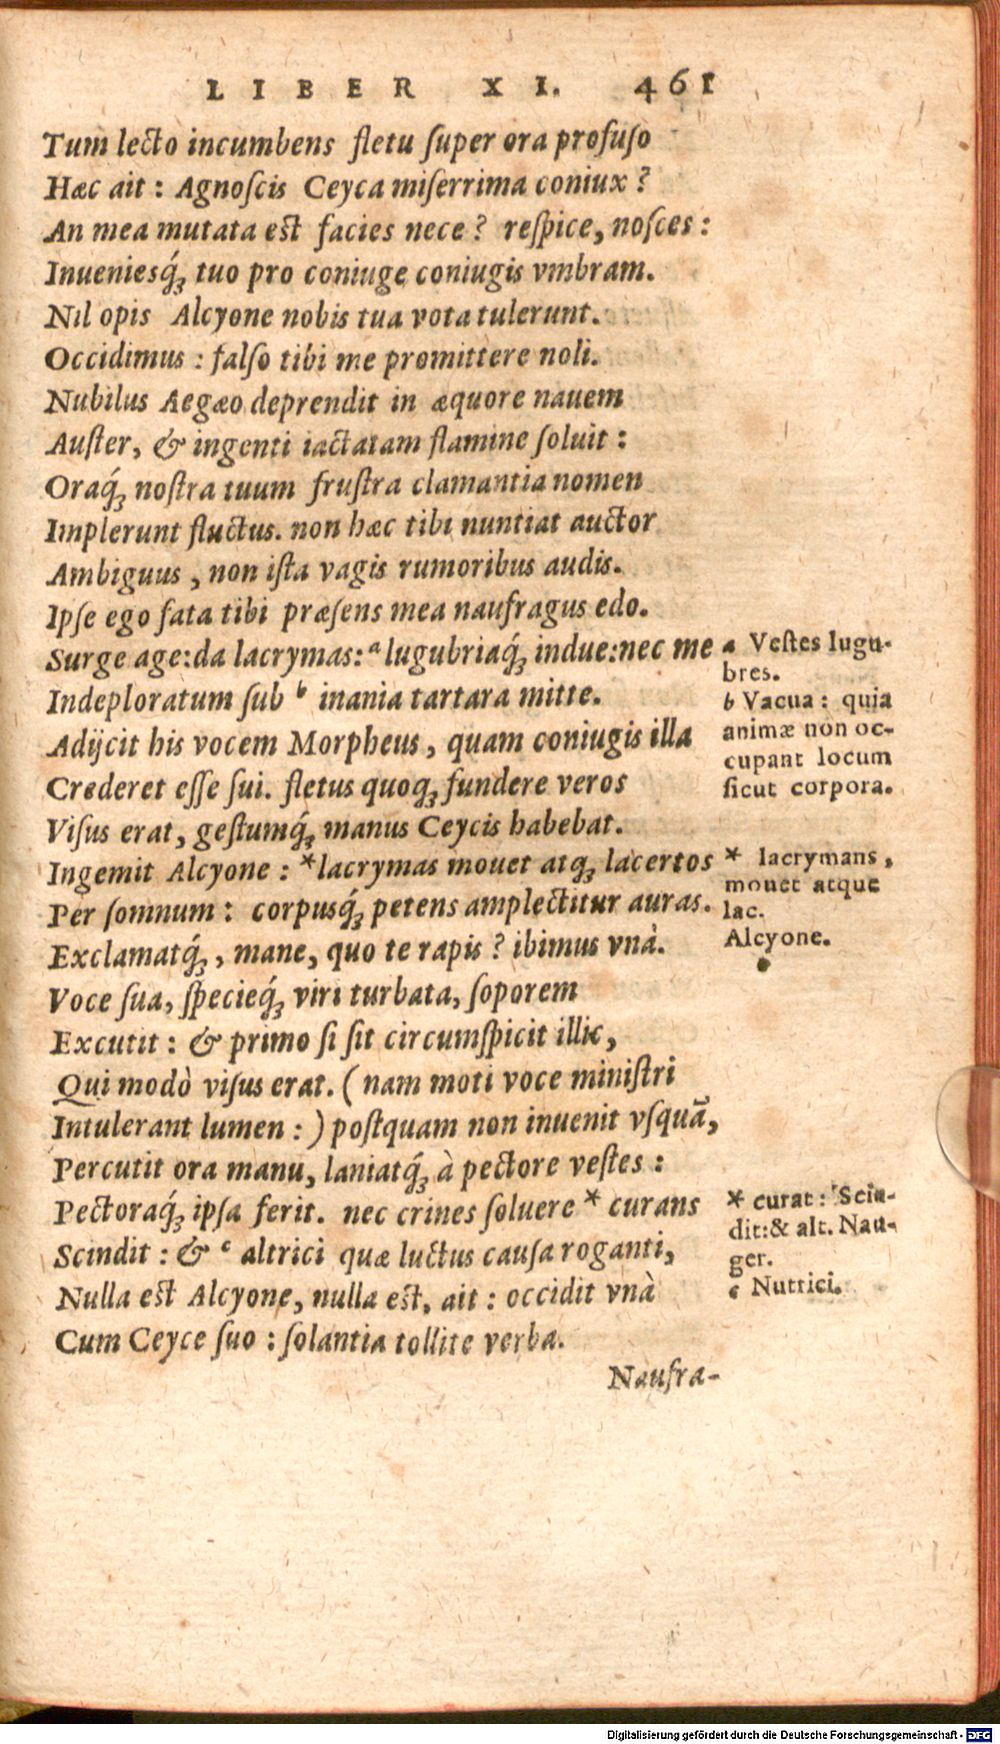 LIBER XI. 461
Tum lecto incumbens fletu ſuper ora profuſo
Hæc ait : Agnoſcis Ceyca miſerrima coniux ?
An mea mutata est facies nece ? reſpice, noſces :
Inuenieśq́ꝫ tuo pro coniuge coniugis vmbram.
Nil opis Alcyone nobis tua vota tulerunt.
Occidimus : falſo tibi me promittere noli.
Nubilus Aegæo deprendit in æquore nauem
Auſter, & ingenti iactatam flamine ſoluit :
Oraq́ꝫ noſtra tuum fruſtra clamantia nomen
Implerunt fluctus. non hæc tibi nuntiat auctor
Ambiguus , non iſta vagis rumoribus audis.
Ipſe ego fata tibi præſens mea naufragus edo.
Surge age:da lacrymas: a lugubriaq́ꝫ indue:nec me
Indeploratum ſub b inania tartara mitte.
Adijcit his vocem Morpheus, quam coniugis illa
Crederet eſſe ſui. fletus quoqꝫ fundere veros
Viſus erat, geſtumq́ꝫ manus Ceycis habebat.
Ingemit Alcyone : *lacrymas mouet atqꝫ lacertos
Per ſomnum : corpusq́ꝫ petens amplectitur auras.
Exclamatq́ꝫ , mane, quo te rapis ? ibimus vnà.
Voce ſua, ſpecieq́ꝫ viri turbata, ſoporem
Excutit : & primo ſi ſit circumſpicit illic,
Qui modò viſus erat. ( nam moti voce miniſtri
Intulerant lumen : ) poſtquam non inuenit vſquã,
Percutit ora manu, laniatq́ꝫ à pectore veſtes :
Pectoraq́ꝫ ipſa ferit. nec crines ſoluere * curans
Scindit : & c altrici quæ luctus cauſa roganti,
Nulla est Alcyone, nulla est, ait : occidit vnà
Cum Ceyce ſuo : ſolantia tollite verba.
Naufra-
a Veſtes lugu-
bres.
b Vacua : quia
animæ non oc-
cupant locum
ſicut corpora.
* lacrymans ,
mouet atque
lac.
Alcyone.
* curat : Scin-
dit:& alt. Nau-
ger.
c Nutrici.
Digitalisierung gefördert durch die Deutsche Forschungsgemeinschaft - DFG